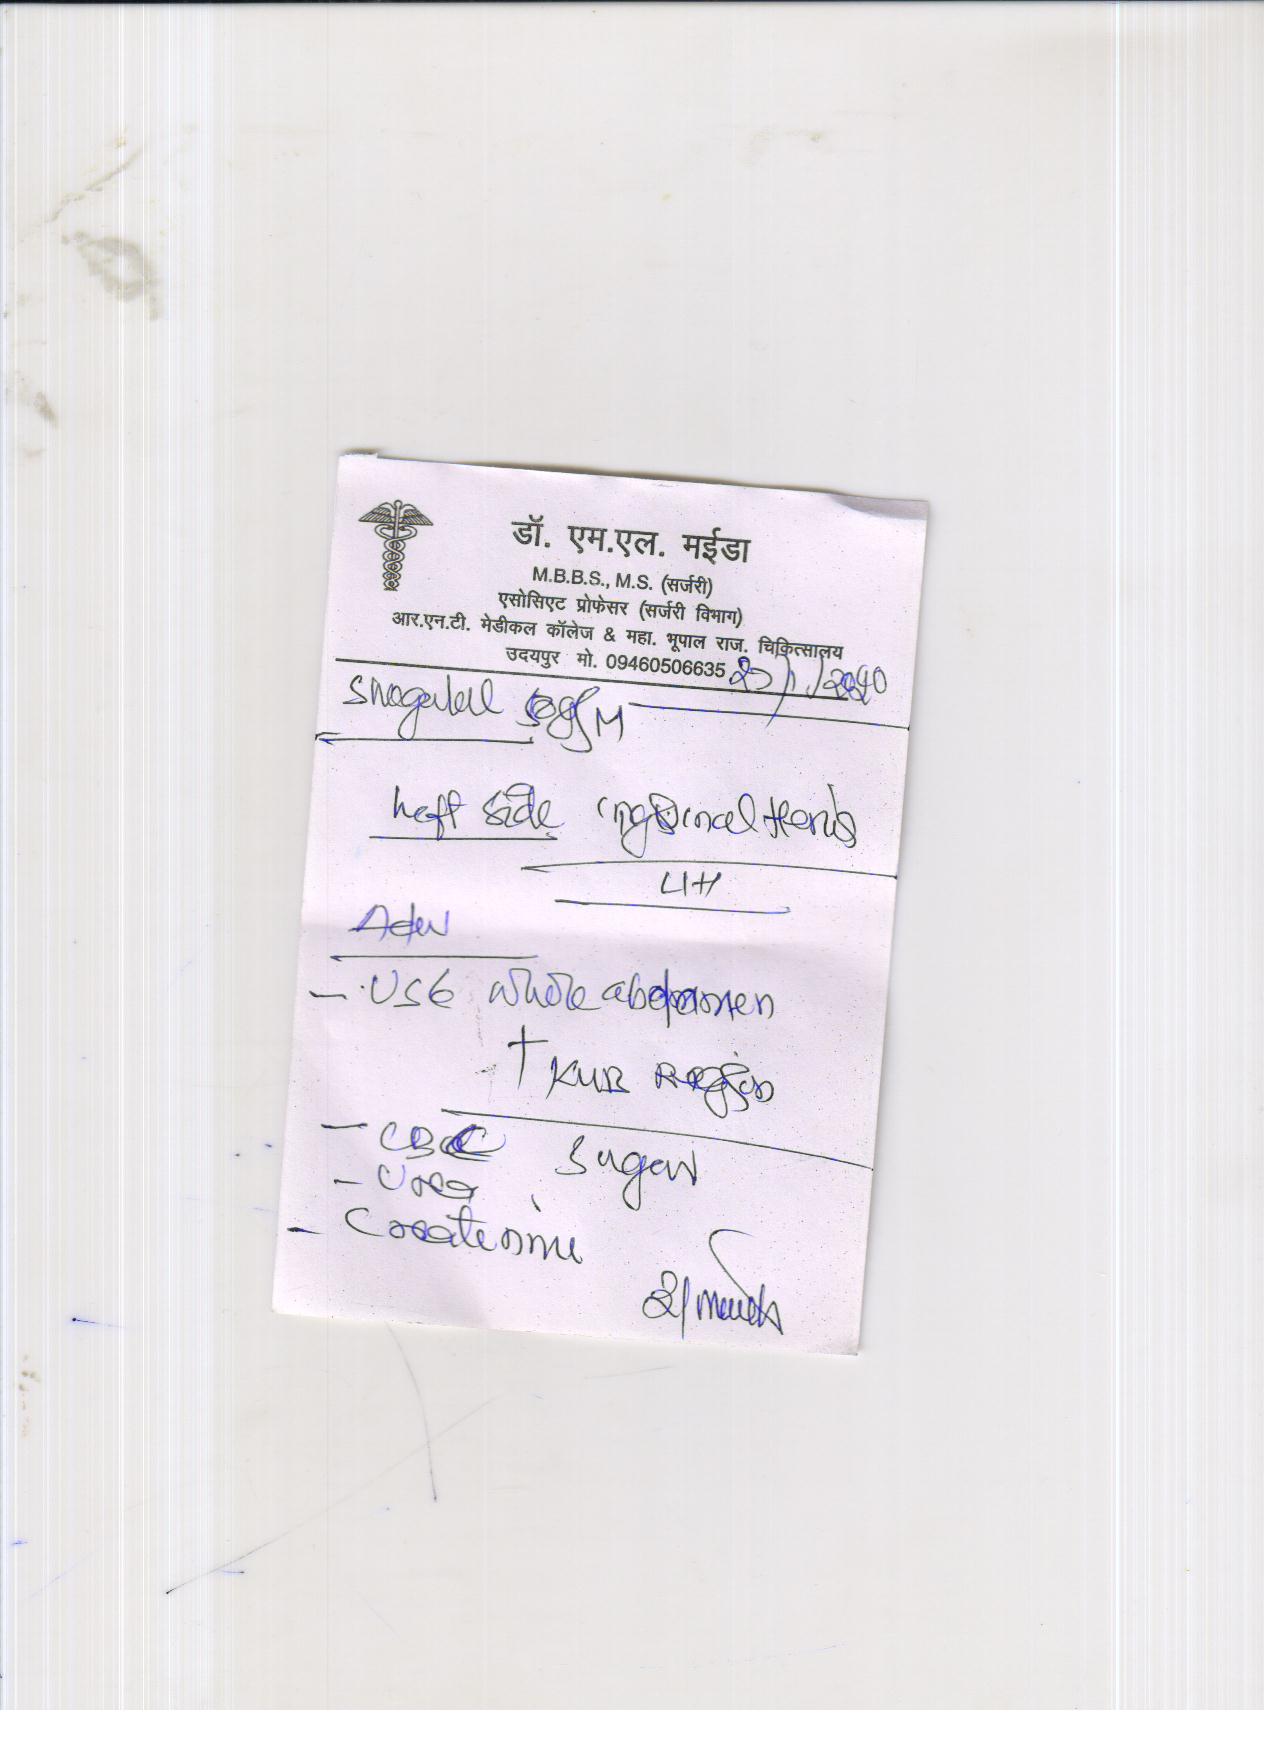 डॉ. एम.एल. मईडा
M.B.B.S., M.S. (सर्जरी)
एसोसिएट प्रोफेसर (सर्जरी विभाग)
आर.एन.टी. मेडीकल कॉलेज & महा. भूपाल राज. चिकित्सालय
उदयपुर मो. 09460506635
M
Left side inguinal Hernia
LIH
Adv
- USG whole abdomen
+ KUB Region
- CBC Sugar
- Urea
- Creatinine